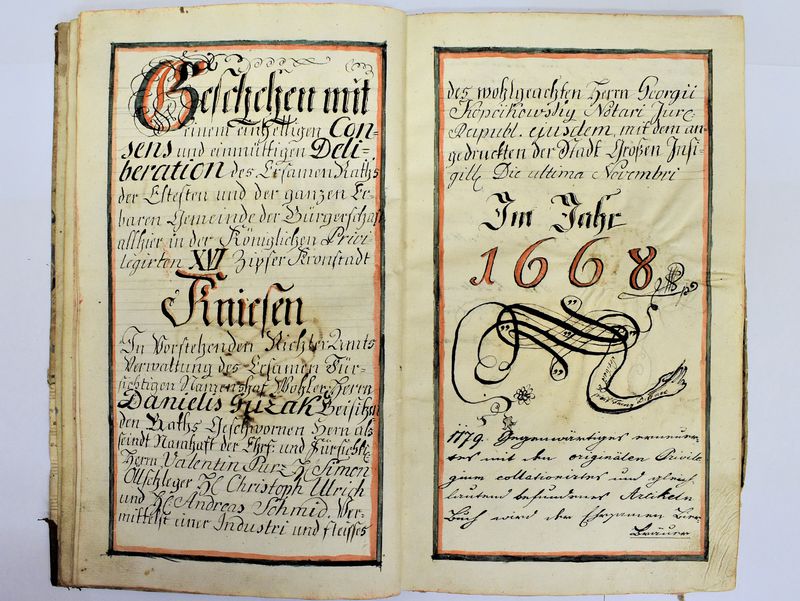 Geschehen mit
einem einhelligen Con-
sens und einmüttigen Deli-
beration des Ersamen Raths
der Eltesten und der ganzen Er-
baren Gemeinde der Bürgerschaft
allhier in der Königlichen Privi-
legirten XVI Zipser Kronstadt
Kniesen
In Vorstehenden Richter Amts
Verwaltung des Ersamen Für-
sichtigen Namenshaf. Wohler. Herrn
Danielis Guzak Beisitzen
den Raths Geschwornen Hern als
seindt Namhaft der Ehrs: und Fürsicht:
Herrn Valentin Purz H. Simon
Ollschleger H. Christoph Ulrich
und H. Andreas Schmid. Ver-
mittelst einer Industri und fleisses
des wohlgeachten Herrn Georgii
Kopcikowskÿ Notari Jure
Reipubl. ejusdem, mit dem an-
gedruckten der Stadt Großen Insi-
gill. Die ultima Novembri
Im Jahr
1668
1779. Gegenwärtiges erneuer-
tes mit den originalen Privile
gium collationirtes und gleich
lautend befundenes Artikeln
Buch wird der Ehrsamen Bier
Bräuer